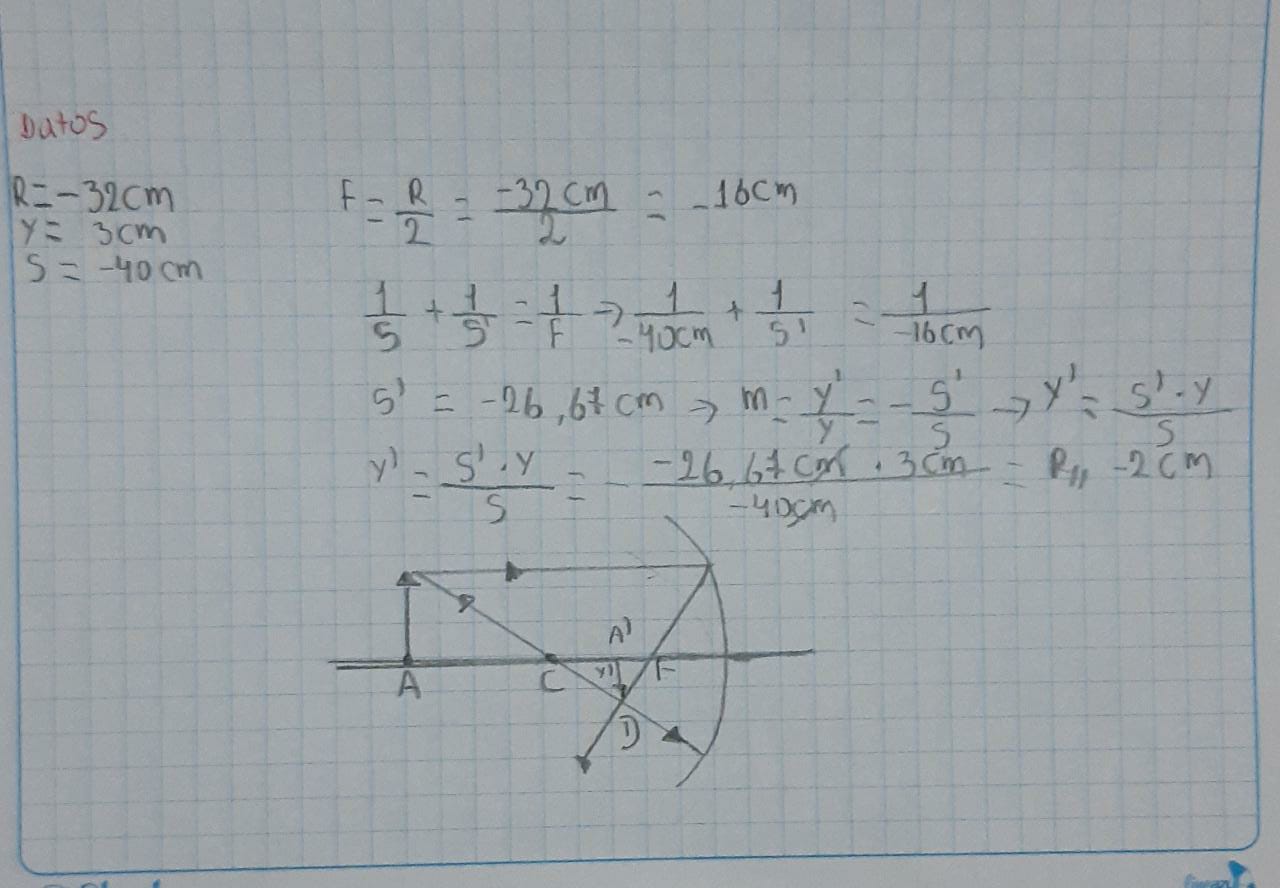 Datos
R = -32cm
Y = 3cm
S = -40 cm
F = R/2 = -32cm/2 = -16cm
1/S + 1/S' = 1/F → 1/-40cm + 1/S' = 1/-16cm
S' = -26,67cm → m = Y'/Y = - S'/S → Y' = S'·Y/S
Y' = S'·Y/S = - -26,67cm · 3cm/-40cm = R// -2cm
A'
A C Y' F
D